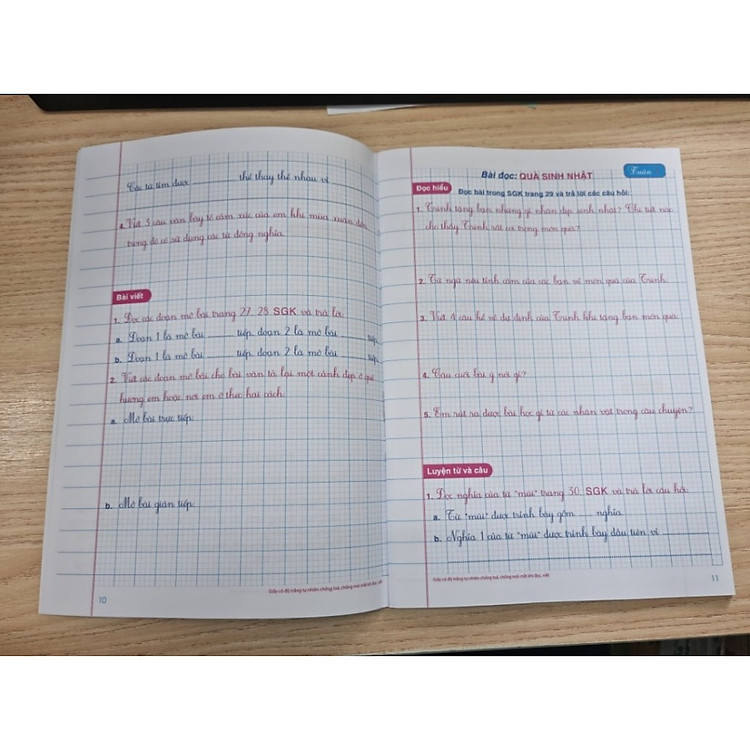 Các từ tìm được thể thay thế nhau vì
4. Viết 3 câu văn bày tỏ cảm xúc của em khi mùa xuân đến,
trong đó có sử dụng các từ đồng nghĩa.
Bài viết
1. Đọc các đoạn mở bài trang 27, 28 SGK và trả lời:
a. Đoạn 1 là mở bài tiếp, đoạn 2 là mở bài tiếp.
b. Đoạn 1 là mở bài tiếp, đoạn 2 là mở bài tiếp.
2. Viết các đoạn mở bài cho bài văn tả lại một cảnh đẹp ở quê
hương em hoặc nơi em ở theo hai cách:
a. Mở bài trực tiếp:
b. Mở bài gián tiếp:
Giấy có độ trắng tự nhiên chống loá, chống mỏi mắt khi đọc, viết
10
Bài đọc: QUÀ SINH NHẬT
Tuần
Đọc hiểu
Đọc bài trong SGK trang 29 và trả lời các câu hỏi:
1. Trinh tặng bạn những gì nhân dịp sinh nhật? Chi tiết nào
cho thấy Trinh rất trong món quà?
2. Từ ngữ nêu tình cảm của các bạn về món quà của Trinh.
3. Viết 4 câu kể về dự định của Trinh khi tặng bạn món quà.
4. Câu cuối bài ý nói gì?
5. Em rút ra được bài học gì từ các nhân vật trong câu chuyện?
Luyện từ và câu
1. Đọc nghĩa của từ "mùi" trang 30, SGK và trả lời câu hỏi:
a. Từ "mùi" được trình bày gồm nghĩa.
b. Nghĩa 1 của từ "mùi" được trình bày đầu tiên vì
Giấy có độ trắng tự nhiên chống loá, chống mỏi mắt khi đọc, viết
11